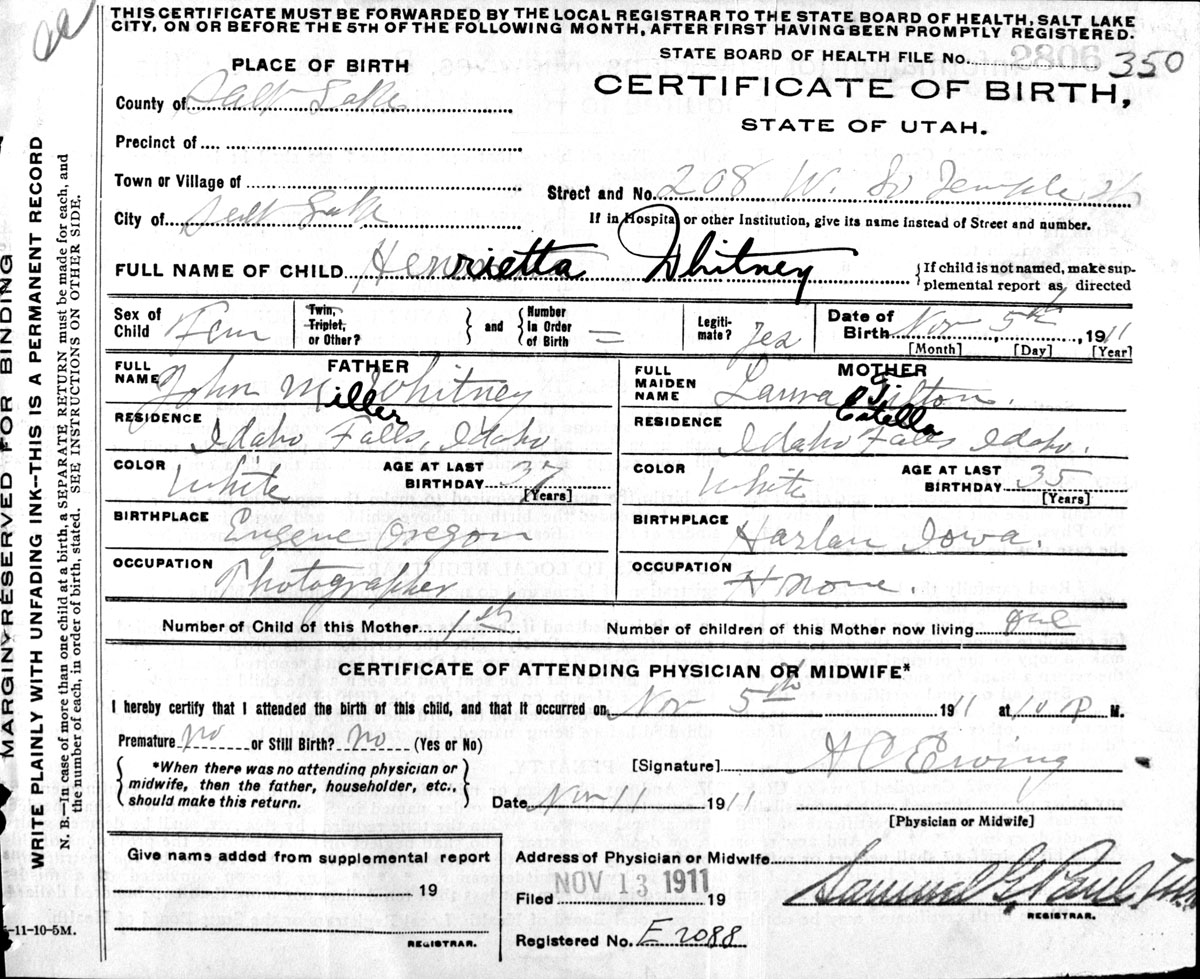 THIS CERTIFICATE MUST BE FORWARDED BY THE LOCAL REGISTRAR TO THE STATE BOARD OF HEALTH, SALT LAKE
CITY, ON OR BEFORE THE 5TH OF THE FOLLOWING MONTH, AFTER FIRST HAVING BEEN PROMPTLY REGISTERED.
STATE BOARD OF HEALTH FILE No. 350
PLACE OF BIRTH
CERTIFICATE OF BIRTH,
STATE OF UTAH.
County of Salt Lake
Precinct of
Town or Village of
Street and No. 208 W. So Temple St
City of Salt Lake
If in Hospital or other Institution, give its name instead of Street and number.
FULL NAME OF CHILD Henrietta Whitney
If child is not named, make sup-
plemental report as directed
Sex of Child Fem
Twin, Triplet, or Other?
and
Number In Order of Birth =
Legiti-mate? Yes
Date of Birth Nov 5th, 1911
[Month] [Day] [Year]
FATHER
FULL NAME John Miller Whitney
MOTHER
FULL MAIDEN NAME Laura Estella Tilton.
RESIDENCE Idaho Falls, Idaho
RESIDENCE Idaho Falls Idaho.
COLOR White
AGE AT LAST BIRTHDAY 37 [Years]
COLOR White
AGE AT LAST BIRTHDAY 35 [Years]
BIRTHPLACE Eugene Oregon
BIRTHPLACE Harlan Iowa.
OCCUPATION Photographer
OCCUPATION
Number of Child of this Mother 1th
Number of children of this Mother now living one
CERTIFICATE OF ATTENDING PHYSICIAN OR MIDWIFE*
I hereby certify that I attended the birth of this child, and that it occurred on Nov 5th 1911 at 10 P M.
Premature no or Still Birth? no (Yes or No)
*When there was no attending physician or
midwife, then the father, householder, etc.,
should make this return.
[Signature] A C Ewing
Date Nov 11 1911
[Physician or Midwife]
Give name added from supplemental report
19
REGISTRAR.
Address of Physician or Midwife
NOV 13 1911
Filed 19
Samuel G. Paul
REGISTRAR.
Registered No. E 2088
-11-10-5M.
MARGIN RESERVED FOR BINDING
WRITE PLAINLY WITH UNFADING INK--THIS IS A PERMANENT RECORD
N. B.--in case of more than one child at a birth, a SEPARATE RETURN must be made for each, and
the number of each, in order of birth, stated. SEE INSTRUCTIONS ON OTHER SIDE.